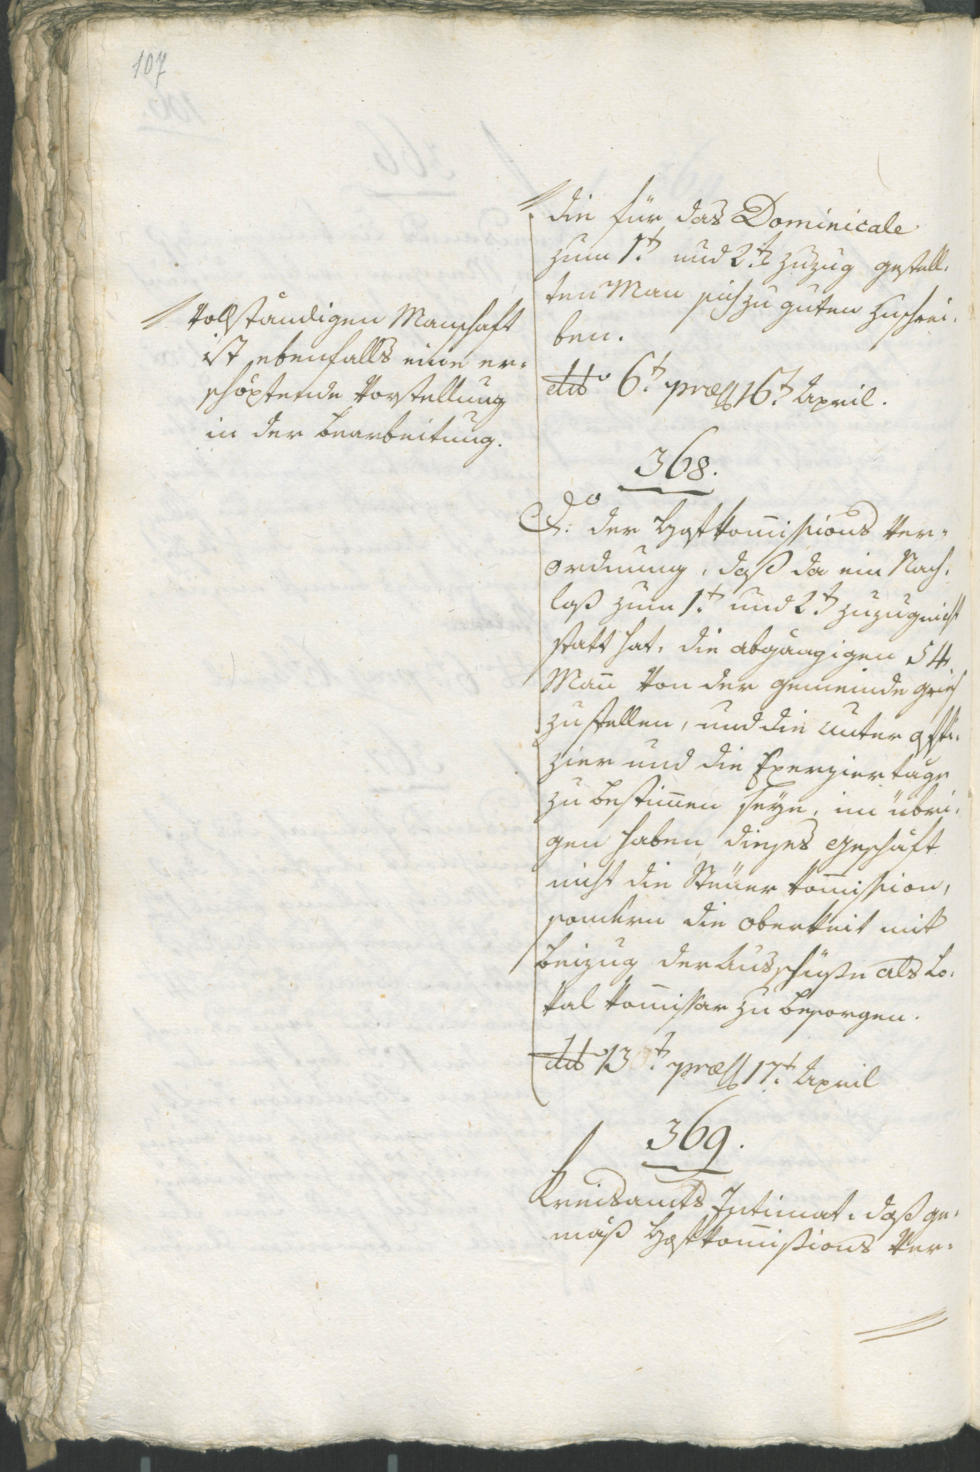 107
Vollständigen Manschaft
ist ebenfalls eine er-
schöpfende Vorstellung
in der bearbeitung.
die für das Dominicale
zum 1t und 2t zuzug gestell-
ten Man sich zu guten zuschrei-
ben.
dtto 6t præss 16t April.
368.
Do der Hofkom̄issions Ver-
ordnung, daß da ein Nach-
laß zum 1t und 2t zuzug nicht
statt hat, die abgängigen 54
Man̄ von der gemeinde Gries
zu stellen, und die unter offi-
zier und die Exerziertäge
zu bestim̄en seÿe, im übri-
gen haben dieses Geschäft
nicht die Steuer kom̄ission,
sondern die oberkeit mit
beizug der Ausschüsse als Lo-
kal kom̄issar zu besorgen.
dtto 13t præss 17t April
369.
Kreisamts Intimat, daß ge-
mäß Hofkom̄issions Ver-